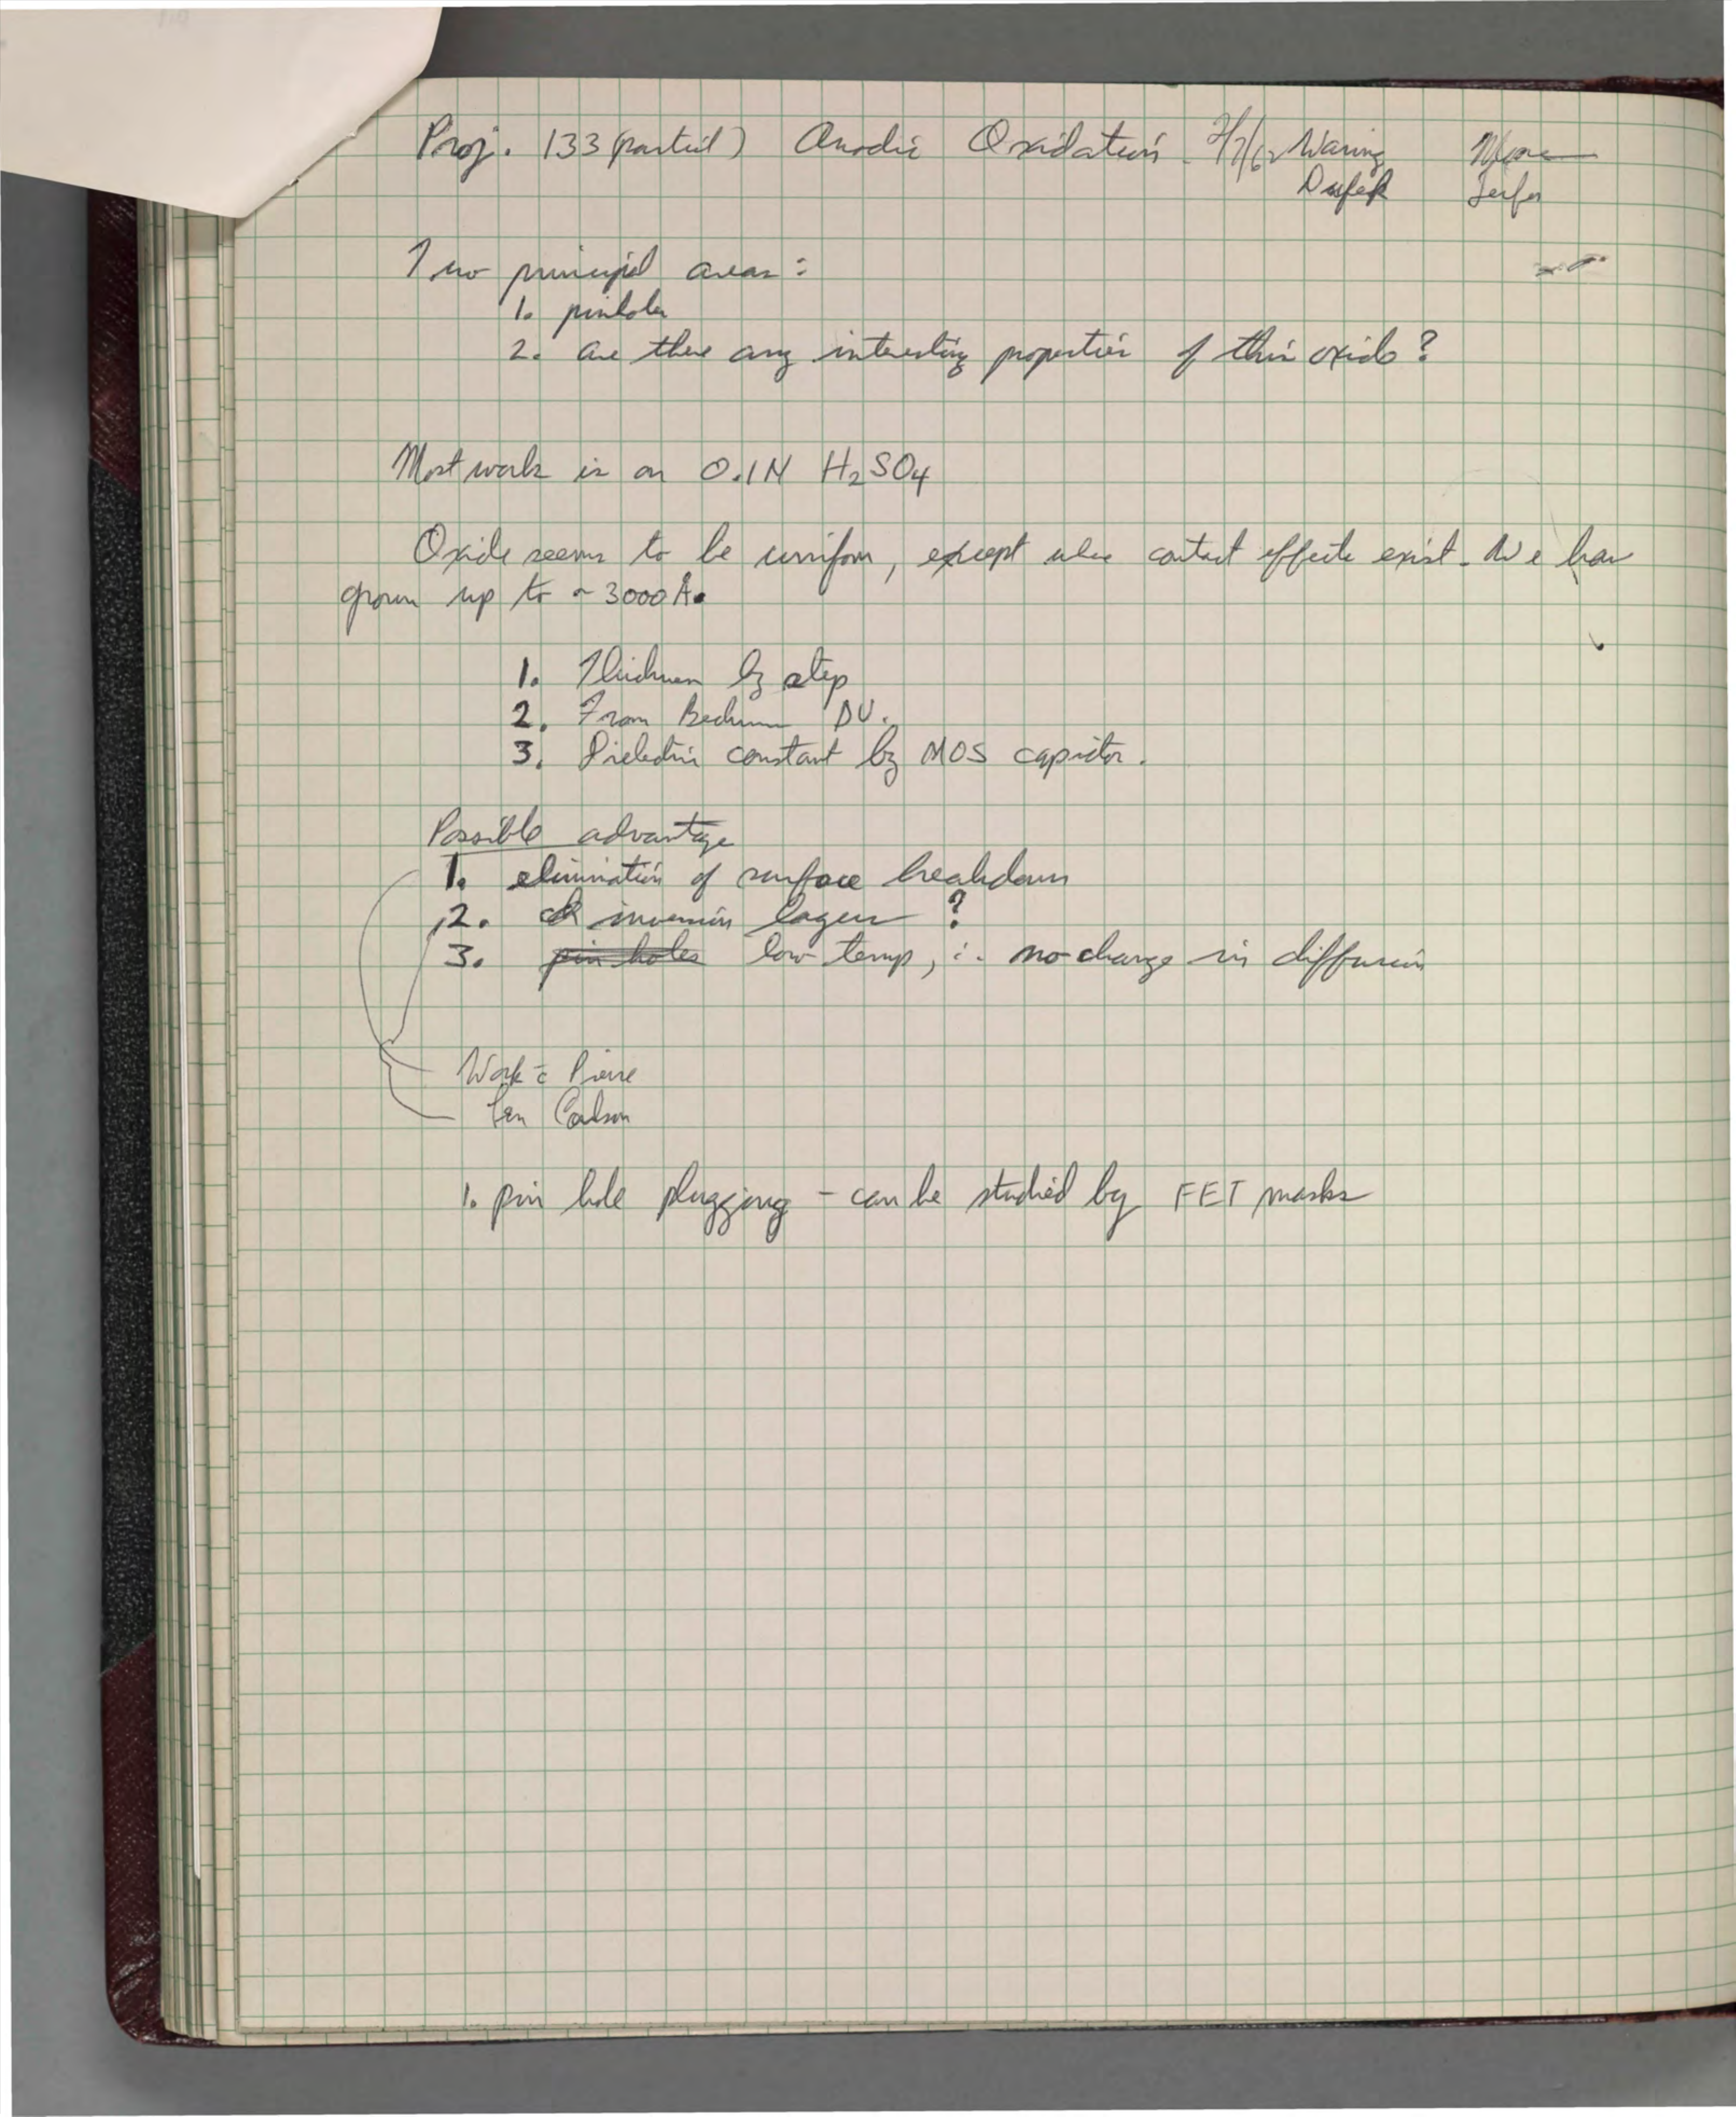 Proj. 133 (partial) Anodic Oxidation - 2/7/62 Waring Moore
Two principal areas:
1. pinholes
2. are there any interesting properties of this oxide?
Most work is on 0.1N H2SO4
Oxide seems to be uniform, except where contact effects exist. We have
grown up to ~3000 Å.
1. Thickness by step
2. From Beckman DU.
3. Dielectric constant by MOS capacitor.
Possible advantage
1. elimination of surface breakdown
2. inversion layers ?
3. pin holes low temp, ∴ no change in diffusion
Work c̄ Pierre
Len Carlson
1. pin hole plugging - can be studied by FET masks